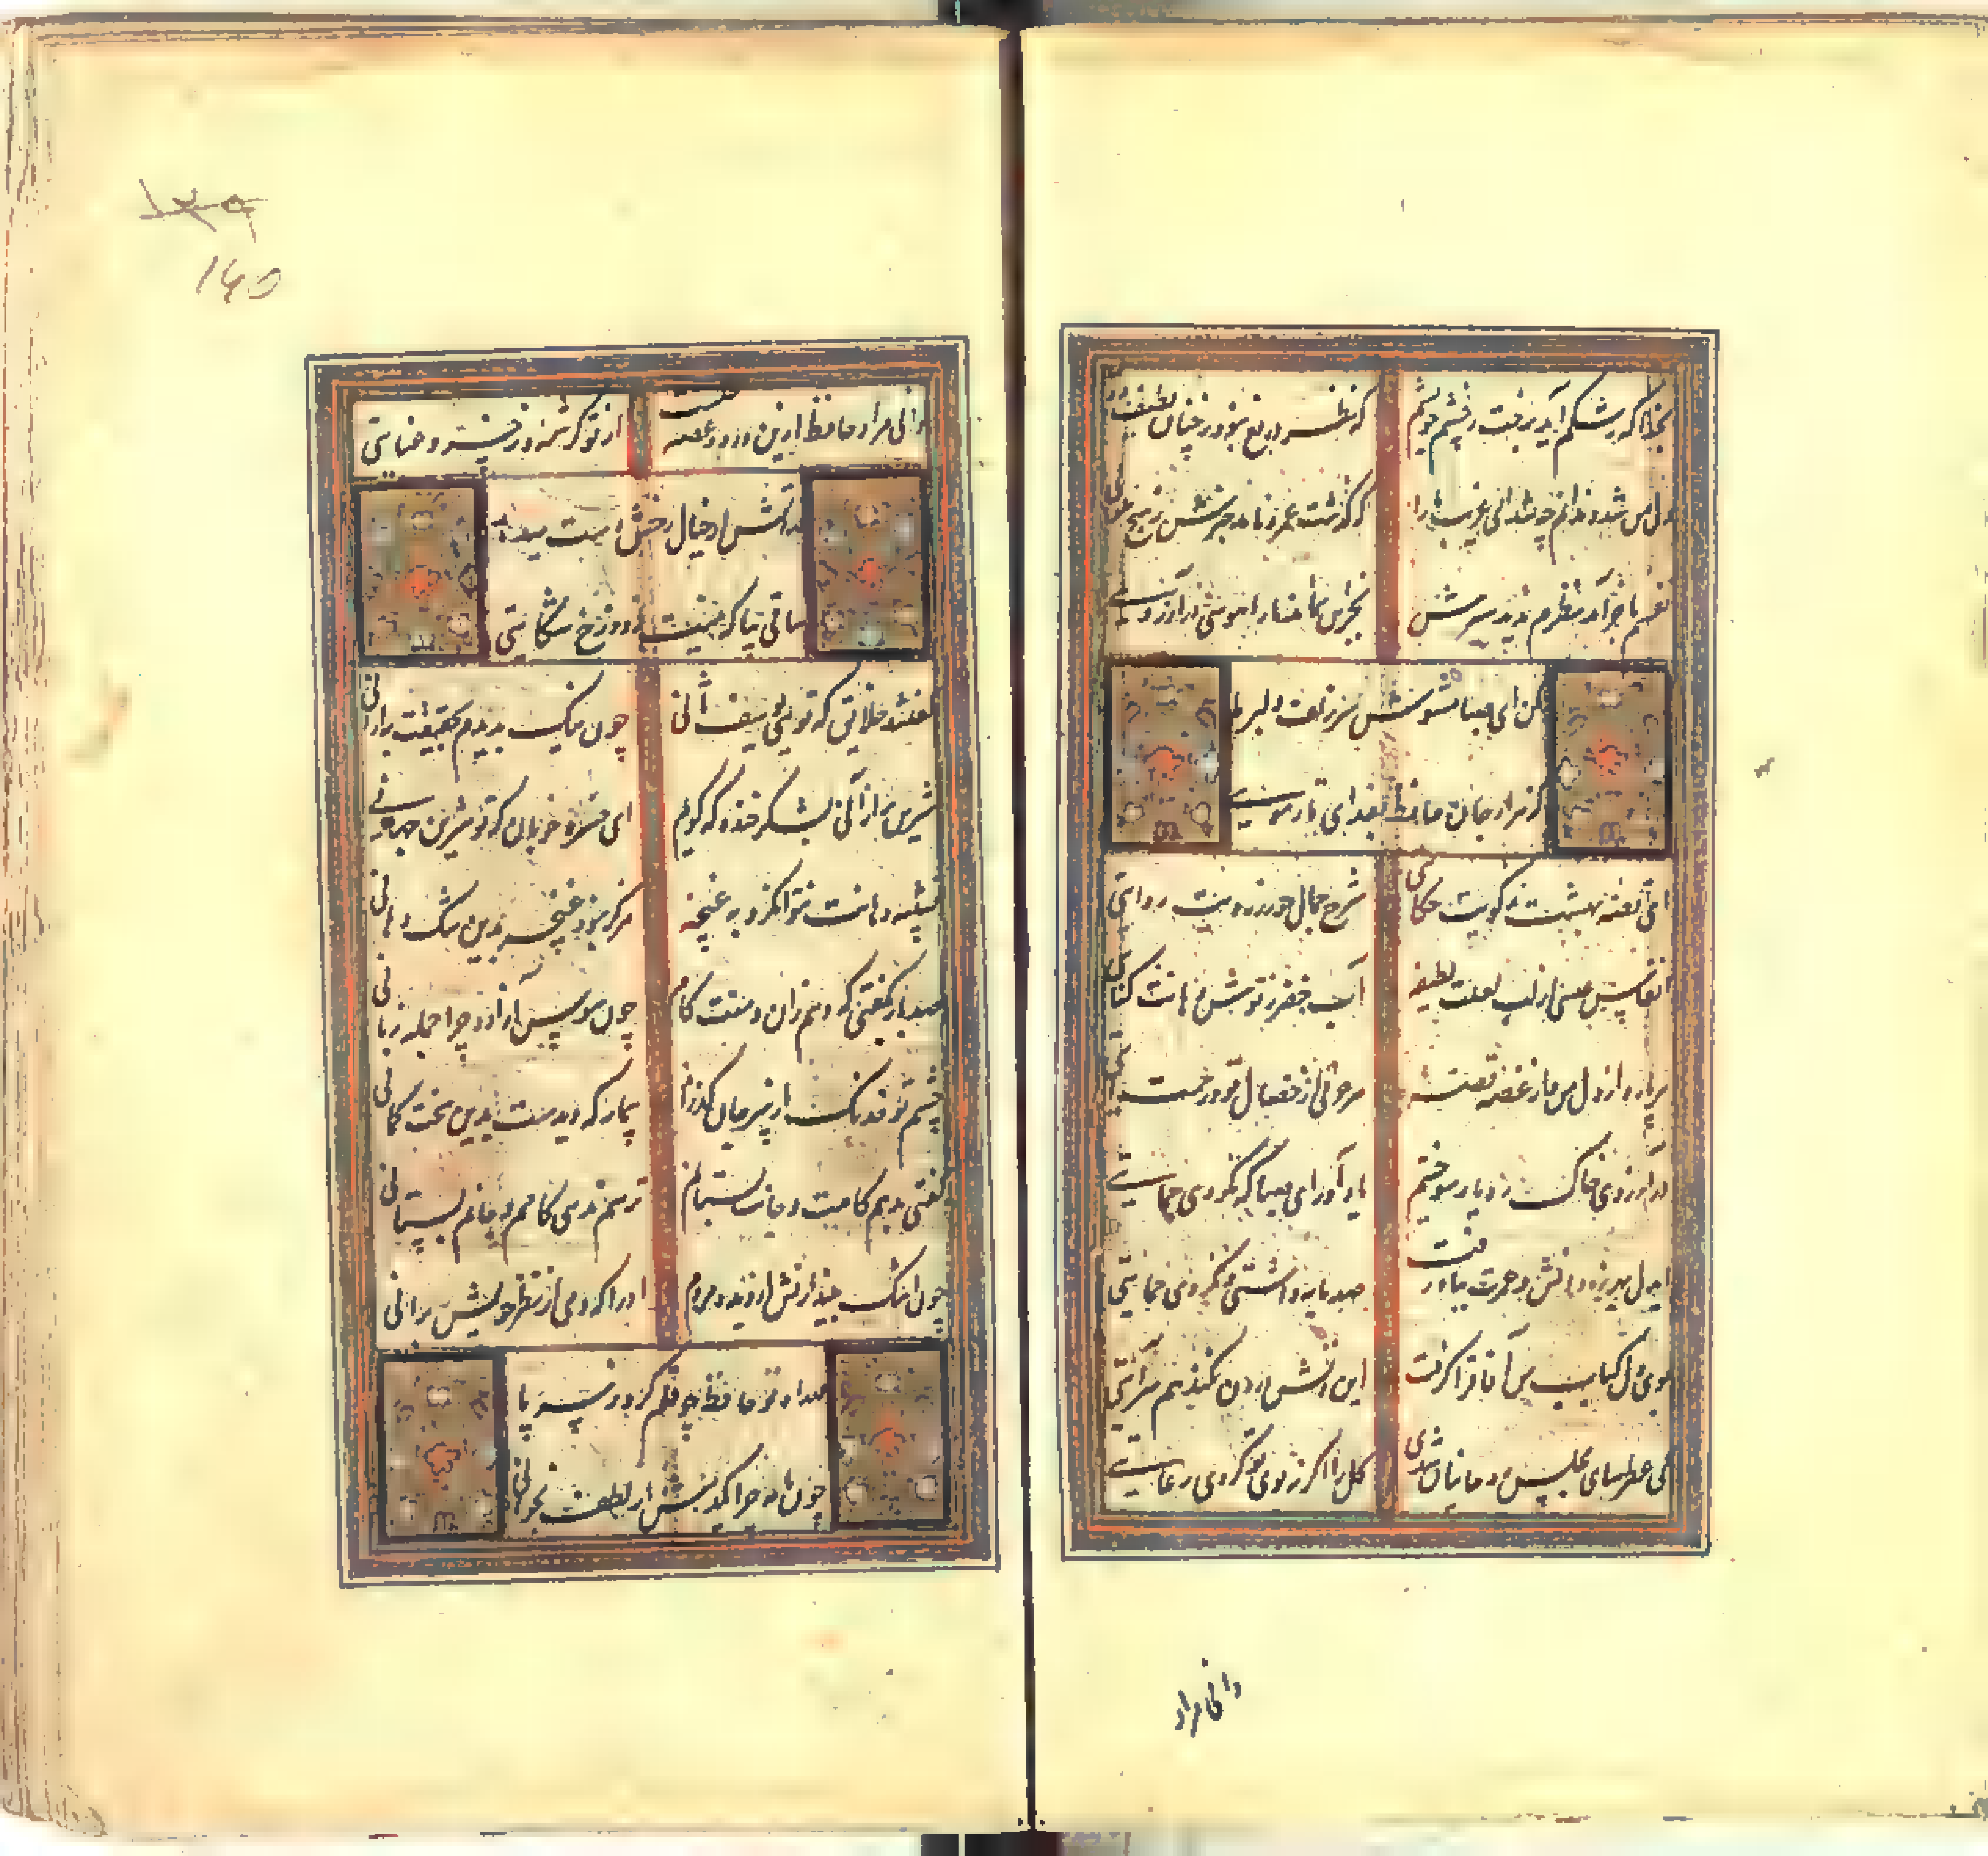 بخدا که رشکم آید برخت ز چشم خویشم
که نظر دریغ نبود ز چنان لطیف رویی
دل من شد و ندانم چه شد آن غریب ما را
که گذشت عمر و نامد خبرش ز هیچ سویی
نفسم بآخر آمد نظرم ندید سیرش
بجز این نماند ما را هوسی و آرزویی
مکن ای صبا مشوش سر زلف دلبر ما
که هزار جان حافظ بفدای تار مویی
ای قصه بهشت ز کویت حکایتی
شرح جمال حور ز رویت روایتی
انفاس عیسی از لب لعلت لطیفه
آب خضر ز نوش دهانت کنایتی
هر پاره از دل من از غصه قصه
هر سطری از خصال تو از رحمت آیتی
در آرزوی خاک در یار سوختیم
یاد آور ای صبا که نکردی حمایتی
ای دل بهرزه دانش و عمرت بباد رفت
صد مایه داشتی و نکردی کفایتی
بوی دل کباب من آفاق را گرفت
این آتش درون بکند هم سرایتی
کی عطرسای مجلس روحانیان شدی
گل را اگر نه بوی تو کردی رعایتی
دانی مراد
دانی مراد حافظ ازین درد و غصه چیست
از تو کرشمه و ز خسرو عنایتی
در آتش ار خیال رخش دست میدهد
ساقی بیا که نیست ز دوزخ شکایتی
گفتند خلایق که تویی یوسف ثانی
چون نیک بدیدم بحقیقت به از آنی
شیرین تر از آنی بشکر خنده که گویم
ای خسرو خوبان که تو شیرین زمانی
تشبیه دهانت نتوان کرد به غنچه
هرگز نبود غنچه بدین تنگ دهانی
صد بار بگفتی که دهم زان دهنت کام
چون سوسن آزاده چرا جمله زبانی
چشم تو خدنگ از سپر جان گذراند
بیمار که دیدست بدین سخت کمانی
گفتی بدهم کامت و جانت بستانم
ترسم ندهی کامم و جانم بستانی
چون اشک بیندازیش از دیده مردم
آنرا که دمی از نظر خویش برانی
در راه تو حافظ چو قلم کرد ز سر پا
چون نامه چرا یکدمش از لطف نخوانی
۱۳۹
145